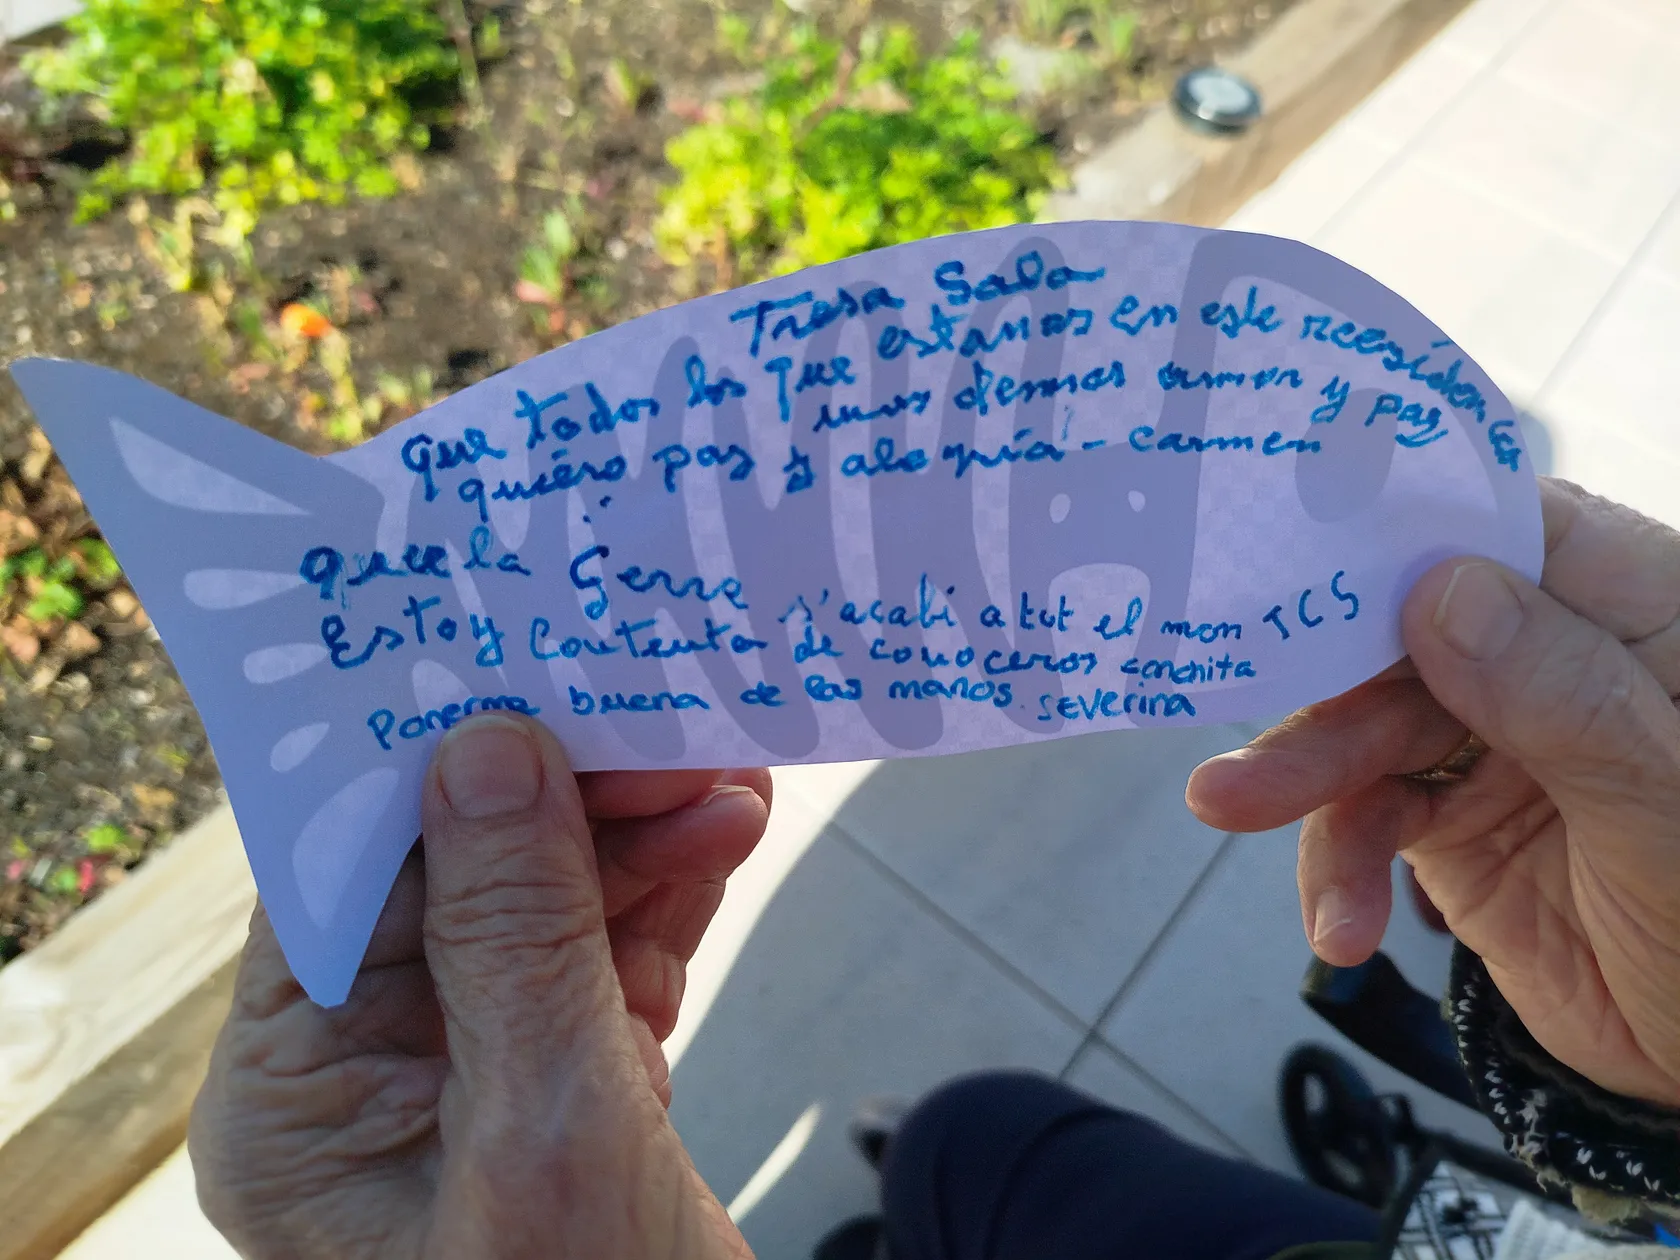 Tresa Sala
que todos los que estamos en este reesidencia
nos demos amor y paz
quiero paz y alegría - Carmen
que la Gerra s'acabi a tot el mon TCS
Estoy Contenta de conoceros conchita
Ponerme buena de las manos. Severina